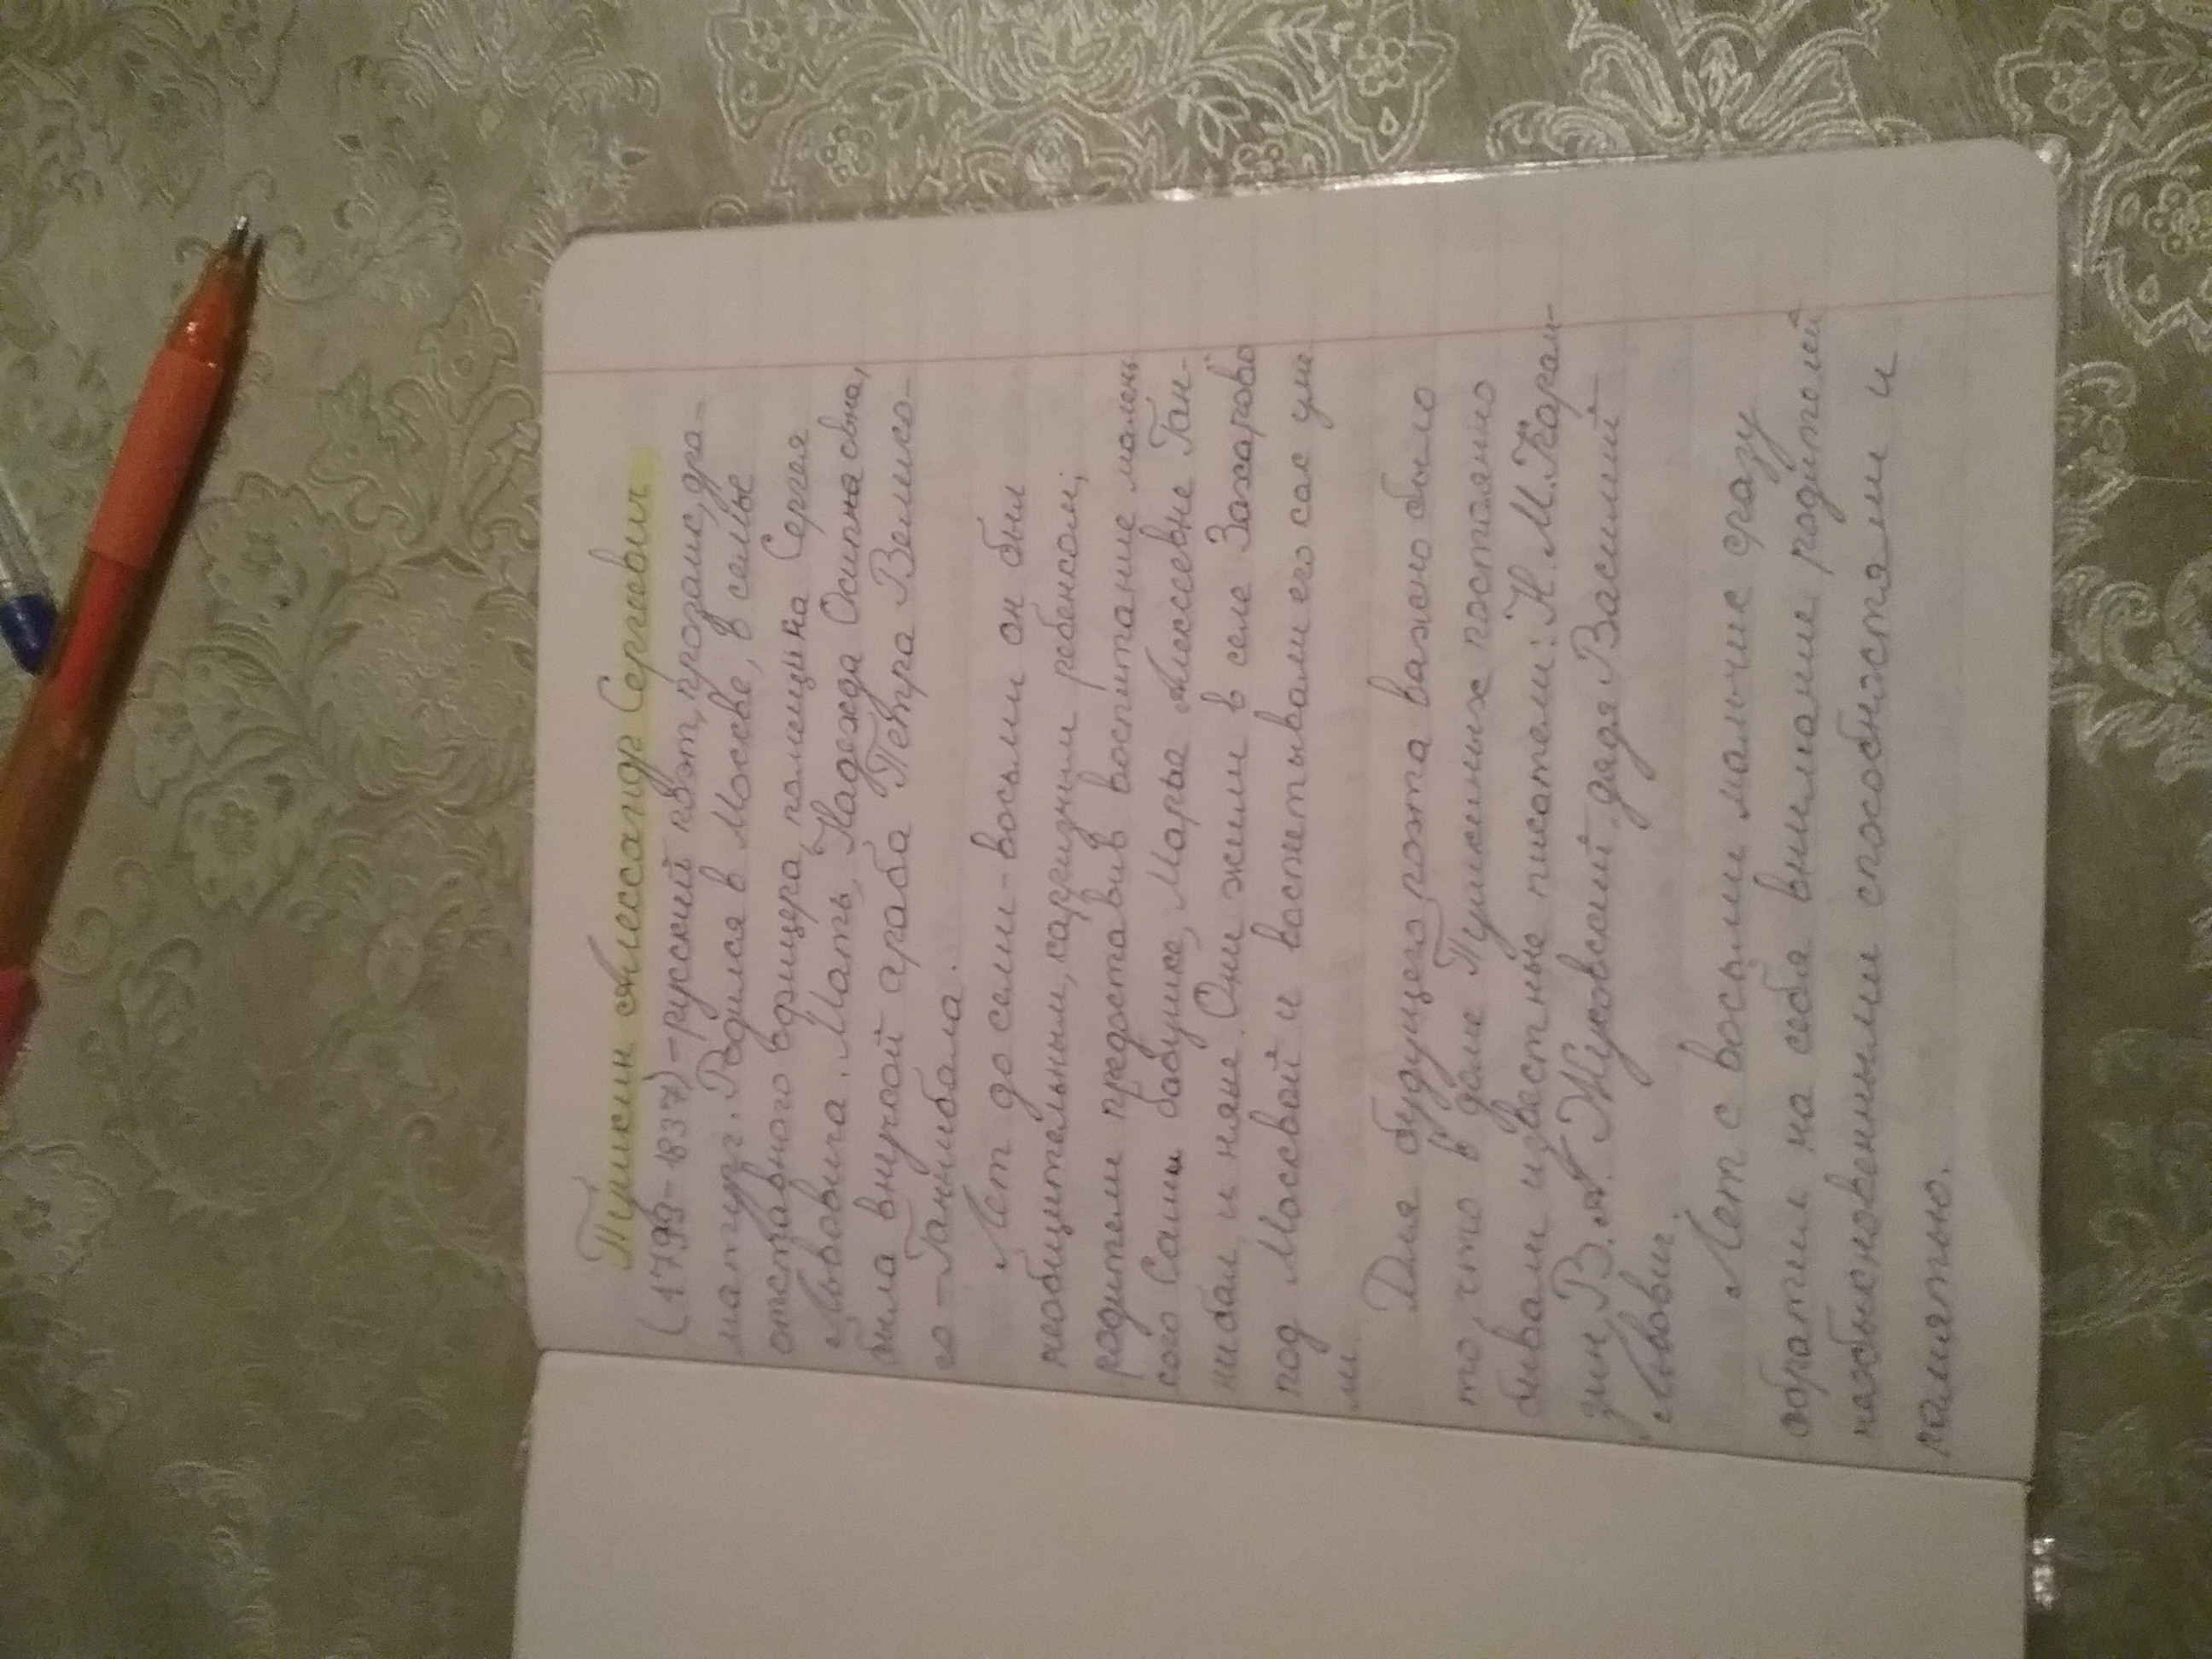 Пушкин Александр Сергеевич
(1799-1837) - русский поэт, прозаик, дра-
матург. Родился в Москве, в семье
отставного офицера, помещика Сергея
Львовича. Мать, Надежда Осиповна,
была внучкой араба Петра Велико-
го - Ганнибала.
Лет до семи-восьми он был
необщительным, капризным ребенком;
родители предоставив воспитание малень
кого Саши бабушке, Марье Алексеевне Ган-
нибал, и няне. Они жили в селе Захарово
под Москвой и воспитывали его как уме
ли.
Для будущего поэта важно было
то, что в доме Пушкиных постоянно
бывали известные писатели: Н. М. Карам-
зин, В. А. Жуковский, дядя Василий
Львович.
Лет с восьми мальчик сразу
обратил на себя внимание родителей
необыкновенными способностями и
памятью.